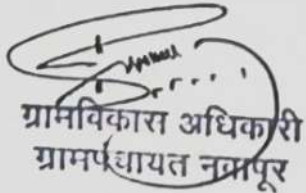 ग्रामविकास अधिकारी
ग्रामपंचायत नवापूर